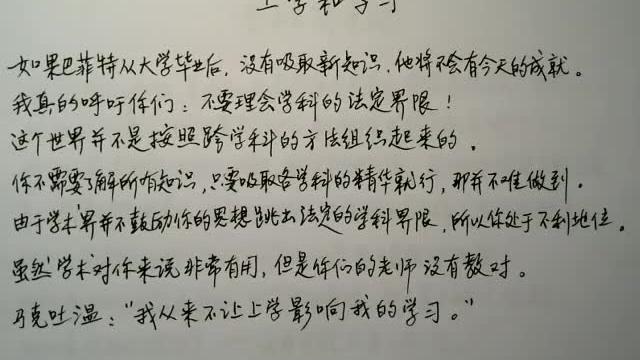 上学和学习
如果巴菲特从大学毕业后，没有吸取新知识，他将不会有今天的成就。
我真的呼吁你们：不要理会学科的法定界限！
这个世界并不是按照跨学科的方法组织起来的。
你不需要了解所有知识，只要吸取各学科的精华就行，那并不难做到。
由于学术界并不鼓励你的思想跳出法定的学科界限，所以你处于不利地位。
虽然学术对你来说非常有用，但是你们的老师没有教对。
马克吐温：“我从来不让上学影响我的学习。”